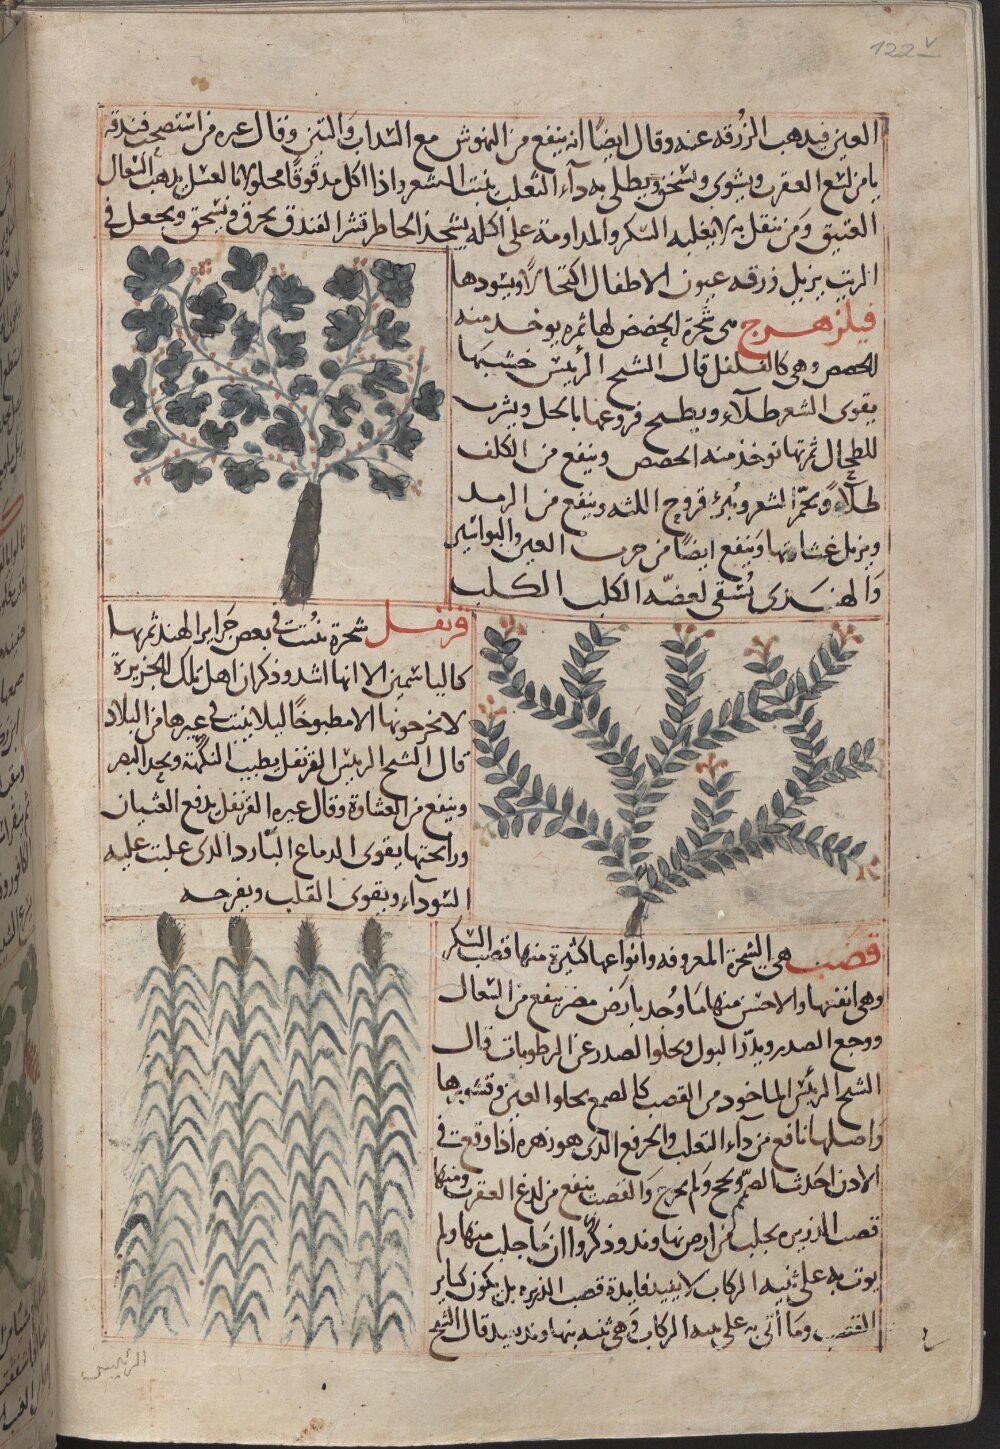 122 v
العين فيذهب الزُرقه عنه وقال ايضاً انه ينفع من النهوش مع الشداب والتين وقال غيره من استصحب فندقة
يامن لسع العقرب ويشوى ويسخن ويطلى به دآء الثعلب ينبت الشعر واذا اكل مدقوقًا محلولا بالعسل يذهب السعال
العتيق ومن تنقل به لا يغلبه السكر والمداومة على اكله يشحذ الخاطر قشر الفندق يحرق ويسحق ويجعل فى
الزيت يزيل زرقه عيون الاطفال اكتحالاً ويسودها
فيلزهرج هى شجرة الحضض لها ثمره يوخذ منه
الحضض وهى كالفلفل قال الشيخ الرئيس خشبها
يقوى الشعر طلآء ويطبخ فروعها بالخل ويشرب
للطحال ثمرتها توخذ منه الحضض وينفع من الكلف
طلآءً ويحمّر الشعر ويُبرئ قروح اللثه وينفع من الرمد
ويزيل غشاوتها وينفع ايضًا من جرب العين والبواسير
والهندى تُسْقى لعضّه الكلب الكلب
قرنفل شجرة تنبُت فى بعض جزاير الهند ثمرتها
كالياسمين الا انها اشد وذكر ان اهل تلك الجزيرة
لا يخرجونها الا مطبوخًا ليلا ينبت فى غيرها من البلاد
قال الشيخ الرييس القرنفل يطيب النكهة ويحد البصر
وينفع من الغشاوة وقال غيره القرنفل يدفع الغثيان
ورايحتها يقوى الدماغ البارد الذى غلبت عليه
السّودآء ويقوى القلب ويفرحه
قصب هى الشجرة المعروفه وانواعها كثيرة منها قصب السكر
وهى انفعها والاحسن منها ما وُجد بارض مصر ينفع من السعال
ووجع الصدر ويدّر البول ويجلوا الصدر عن الرطوبات قال
الشيخ الرئيس الماخوذ من القصب كالصمغ يجلوا العين وقشورها
واصلها نافع من داء الثعلب والحرفع الذى هو زهره اذا وقعت فى
الاذن احدث الصمّ ويحج ولم يخرج والقصب ينفع من لدغ العقرب ومنها
قصب الذريره يجلب من ارض نهاوند وذكروا ان ما جلب منها ولم
يوت به على ثنيه الركاب لا يفيد فايدة قصب الذريره بل يكون كساير
القصب وما أتى به على ثنيه الركاب وهى ثنيه نهاوند يفيد قال الشيخ
الرئيس